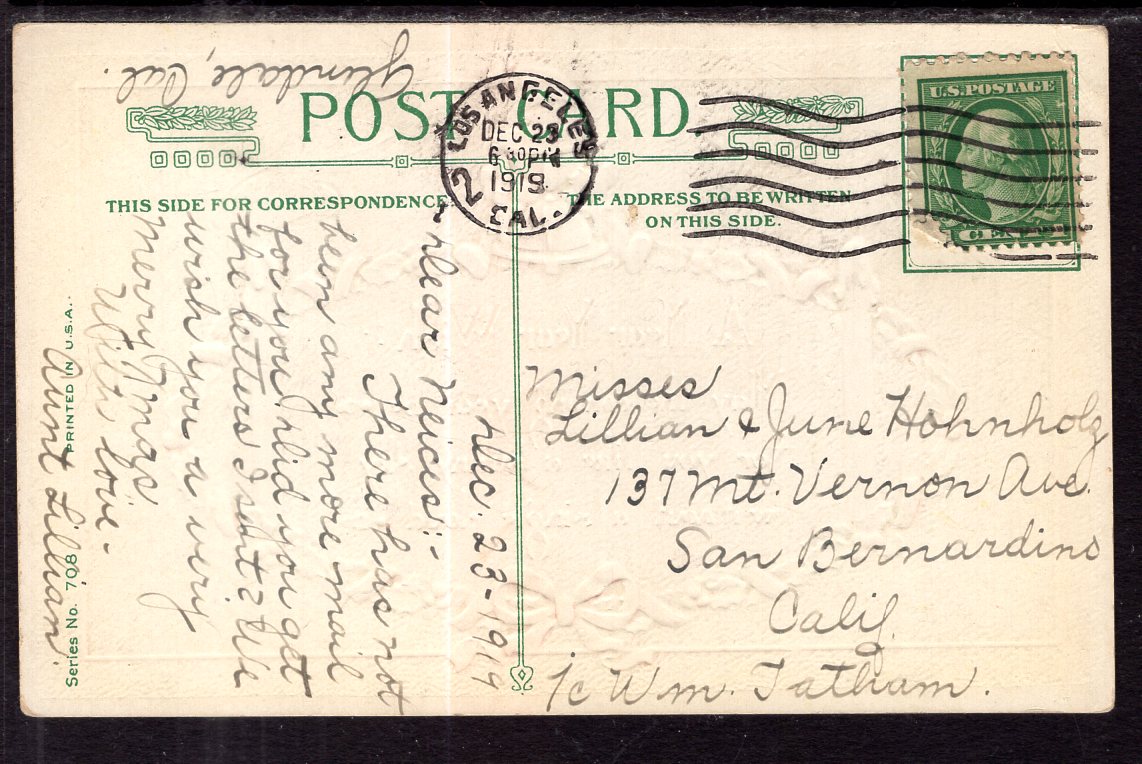 Glendale, Cal.
POST CARD
THIS SIDE FOR CORRESPONDENCE.
THE ADDRESS TO BE WRITTEN
ON THIS SIDE.
LOS ANGELES
DEC 23
6 30 PM
1919
CAL.
2
U.S. POSTAGE
Dec. 23-1919
Dear Neices:-
There has not
been any more mail
for you. Did you get
the letters I sent? We
wish you a very
Merry Xmas
With love-
Aunt Lillian.
Misses
Lillian & June Hohnholz
137 Mt. Vernon Ave.
San Bernardino
Calif.
c/o Wm. Tatham.
Series No. 708
PRINTED IN U.S.A.